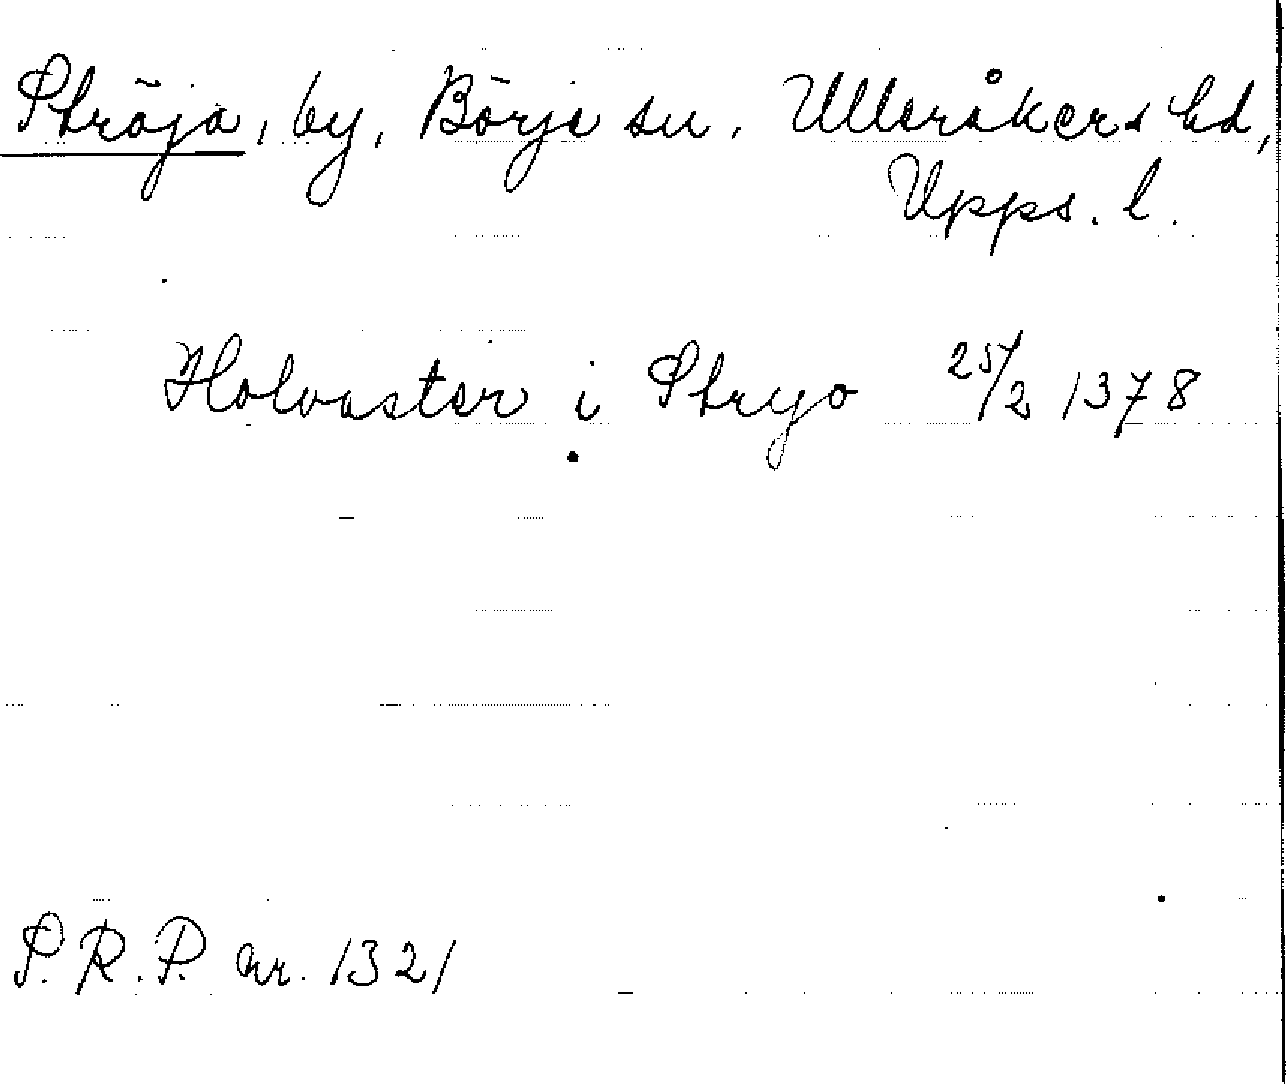 Ströja, by, Börje sn, Ulleråkers hd,
Upps. l.
Holvaster i Stryo 25/2 1378
S.R.P. nr. 1321